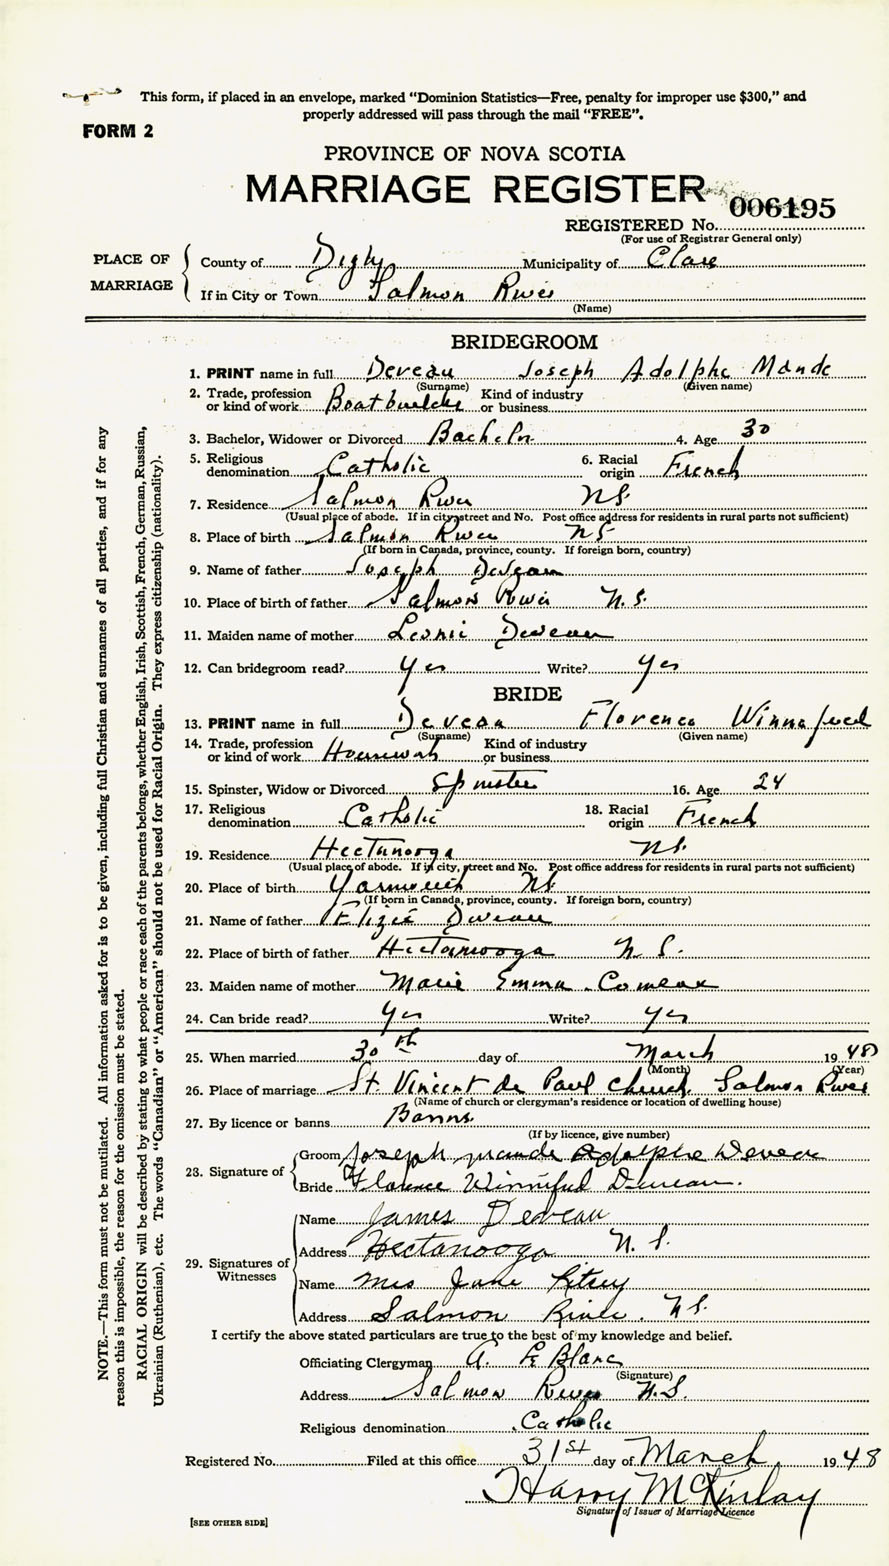 This form, if placed in an envelope, marked “Dominion Statistics—Free, penalty for improper use $300,” and
properly addressed will pass through the mail “FREE”.
FORM 2
PROVINCE OF NOVA SCOTIA
MARRIAGE REGISTER
006195
REGISTERED No.
(For use of Registrar General only)
PLACE OF MARRIAGE
County of Digby Municipality of Clare
If in City or Town Salmon River
(Name)
BRIDEGROOM
1. PRINT name in full Deveau Joseph Adolphe Mande
(Surname) (Given name)
2. Trade, profession or kind of work Boatbuilder Kind of industry or business
3. Bachelor, Widower or Divorced Bachelor 4. Age 30
5. Religious denomination Catholic 6. Racial origin French
7. Residence Salmon River NS.
(Usual place of abode. If in city, street and No. Post office address for residents in rural parts not sufficient)
8. Place of birth Salmon River NS
(If born in Canada, province, county. If foreign born, country)
9. Name of father Joseph Deveau
10. Place of birth of father Salmon River N.S.
11. Maiden name of mother Leonie Deveau
12. Can bridegroom read? Yes Write? Yes
BRIDE
13. PRINT name in full Deveau Florence Winnafred
(Surname) (Given name)
14. Trade, profession or kind of work Housework Kind of industry or business
15. Spinster, Widow or Divorced Spinster 16. Age 24
17. Religious denomination Catholic 18. Racial origin French
19. Residence Hectanooga NS.
(Usual place of abode. If in city, street and No. Post office address for residents in rural parts not sufficient)
20. Place of birth Yarmouth NS.
(If born in Canada, province, county. If foreign born, country)
21. Name of father Elizié Deveau
22. Place of birth of father Hectanooga N S.
23. Maiden name of mother Marie Emma Comeau
24. Can bride read? Yes Write? Yes
25. When married 30th day of March 1948
(Month) (Year)
26. Place of marriage St. Vincent de Paul Church, Salmon River
(Name of church or clergyman's residence or location of dwelling house)
27. By licence or banns Banns
(If by licence, give number)
28. Signature of
Groom Joseph Mande Adolphe Deveau
Bride Florence Winnifred Deveau.
29. Signatures of Witnesses
Name James Deveau
Address Hectanooga N. S.
Name Mrs Jane
Address Salmon River. N.S.
I certify the above stated particulars are true to the best of my knowledge and belief.
Officiating Clergyman A. LeBlanc
(Signature)
Address Salmon River N.S.
Religious denomination Catholic
Registered No. Filed at this office 31st day of March, 1948
Harry McKinlay
Signature of Issuer of Marriage Licence
[SEE OTHER SIDE]
NOTE.—This form must not be mutilated. All information asked for is to be given, including full Christian and surnames of all parties, and if for any
reason this is impossible, the reason for the omission must be stated.
RACIAL ORIGIN will be described by stating to what people or race each of the parents belongs, whether English, Irish, Scottish, French, German, Russian,
Ukrainian (Ruthenian), etc. The words “Canadian” or “American” should not be used for Racial Origin. They express citizenship (nationality).